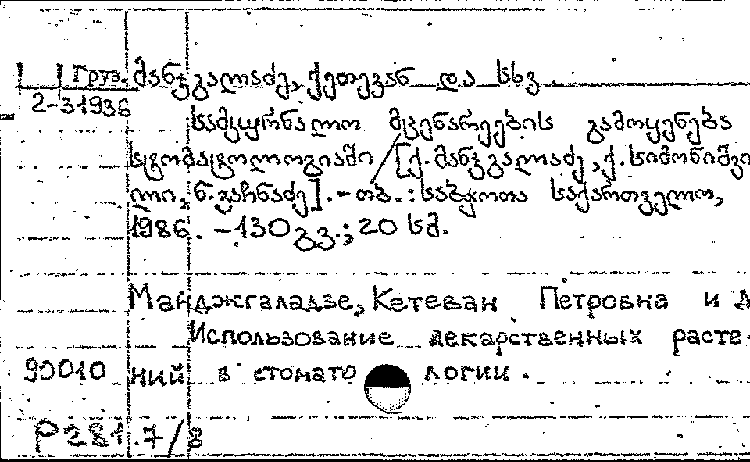 Груз. მანჯგალაძე, ქეთევან და სხვ.
2-31936
სამკურნალო მცენარეების გამოყენება
სტომატოლოგიაში / [ქ. მანჯგალაძე, ქ. სიმონიშვი-
ლი, ნ. ვაჩნაძე]. - თბ. : საბჭოთა საქართველო,
1986. - 130 გვ.; 20 სმ.
Манджгаладзе, Кетеван Петровна и д
Использование лекарственных расте-
90010 ний в стоматологии.
P281.7/8